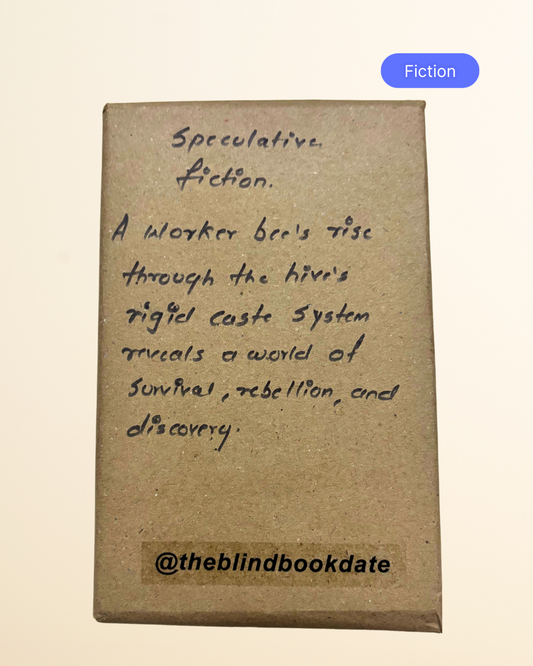 Fiction
Speculative
fiction.
A worker bee's rise
through the hive's
rigid caste system
reveals a world of
survival, rebellion, and
discovery.
@theblindbookdate